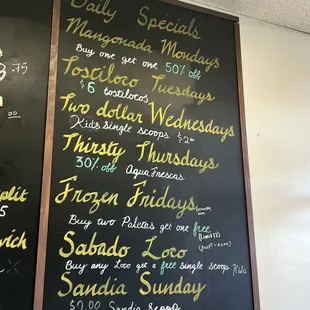 Daily Specials
Mangonada Mondays
Buy one get one 50% off
Tostiloco Tuesdays
$6 tostilocos
Two dollar Wednesdays
Kids single scoops $2
Thirsty Thursdays
30% off Aqua Frescas
Frozen Fridays
Buy two Paletas get one free
Sabado Loco
Buy any Loco get a free single scoop Kids
Sandia Sunday
$2.00 Sandia Scoop
.75
.00
plit
5
wich